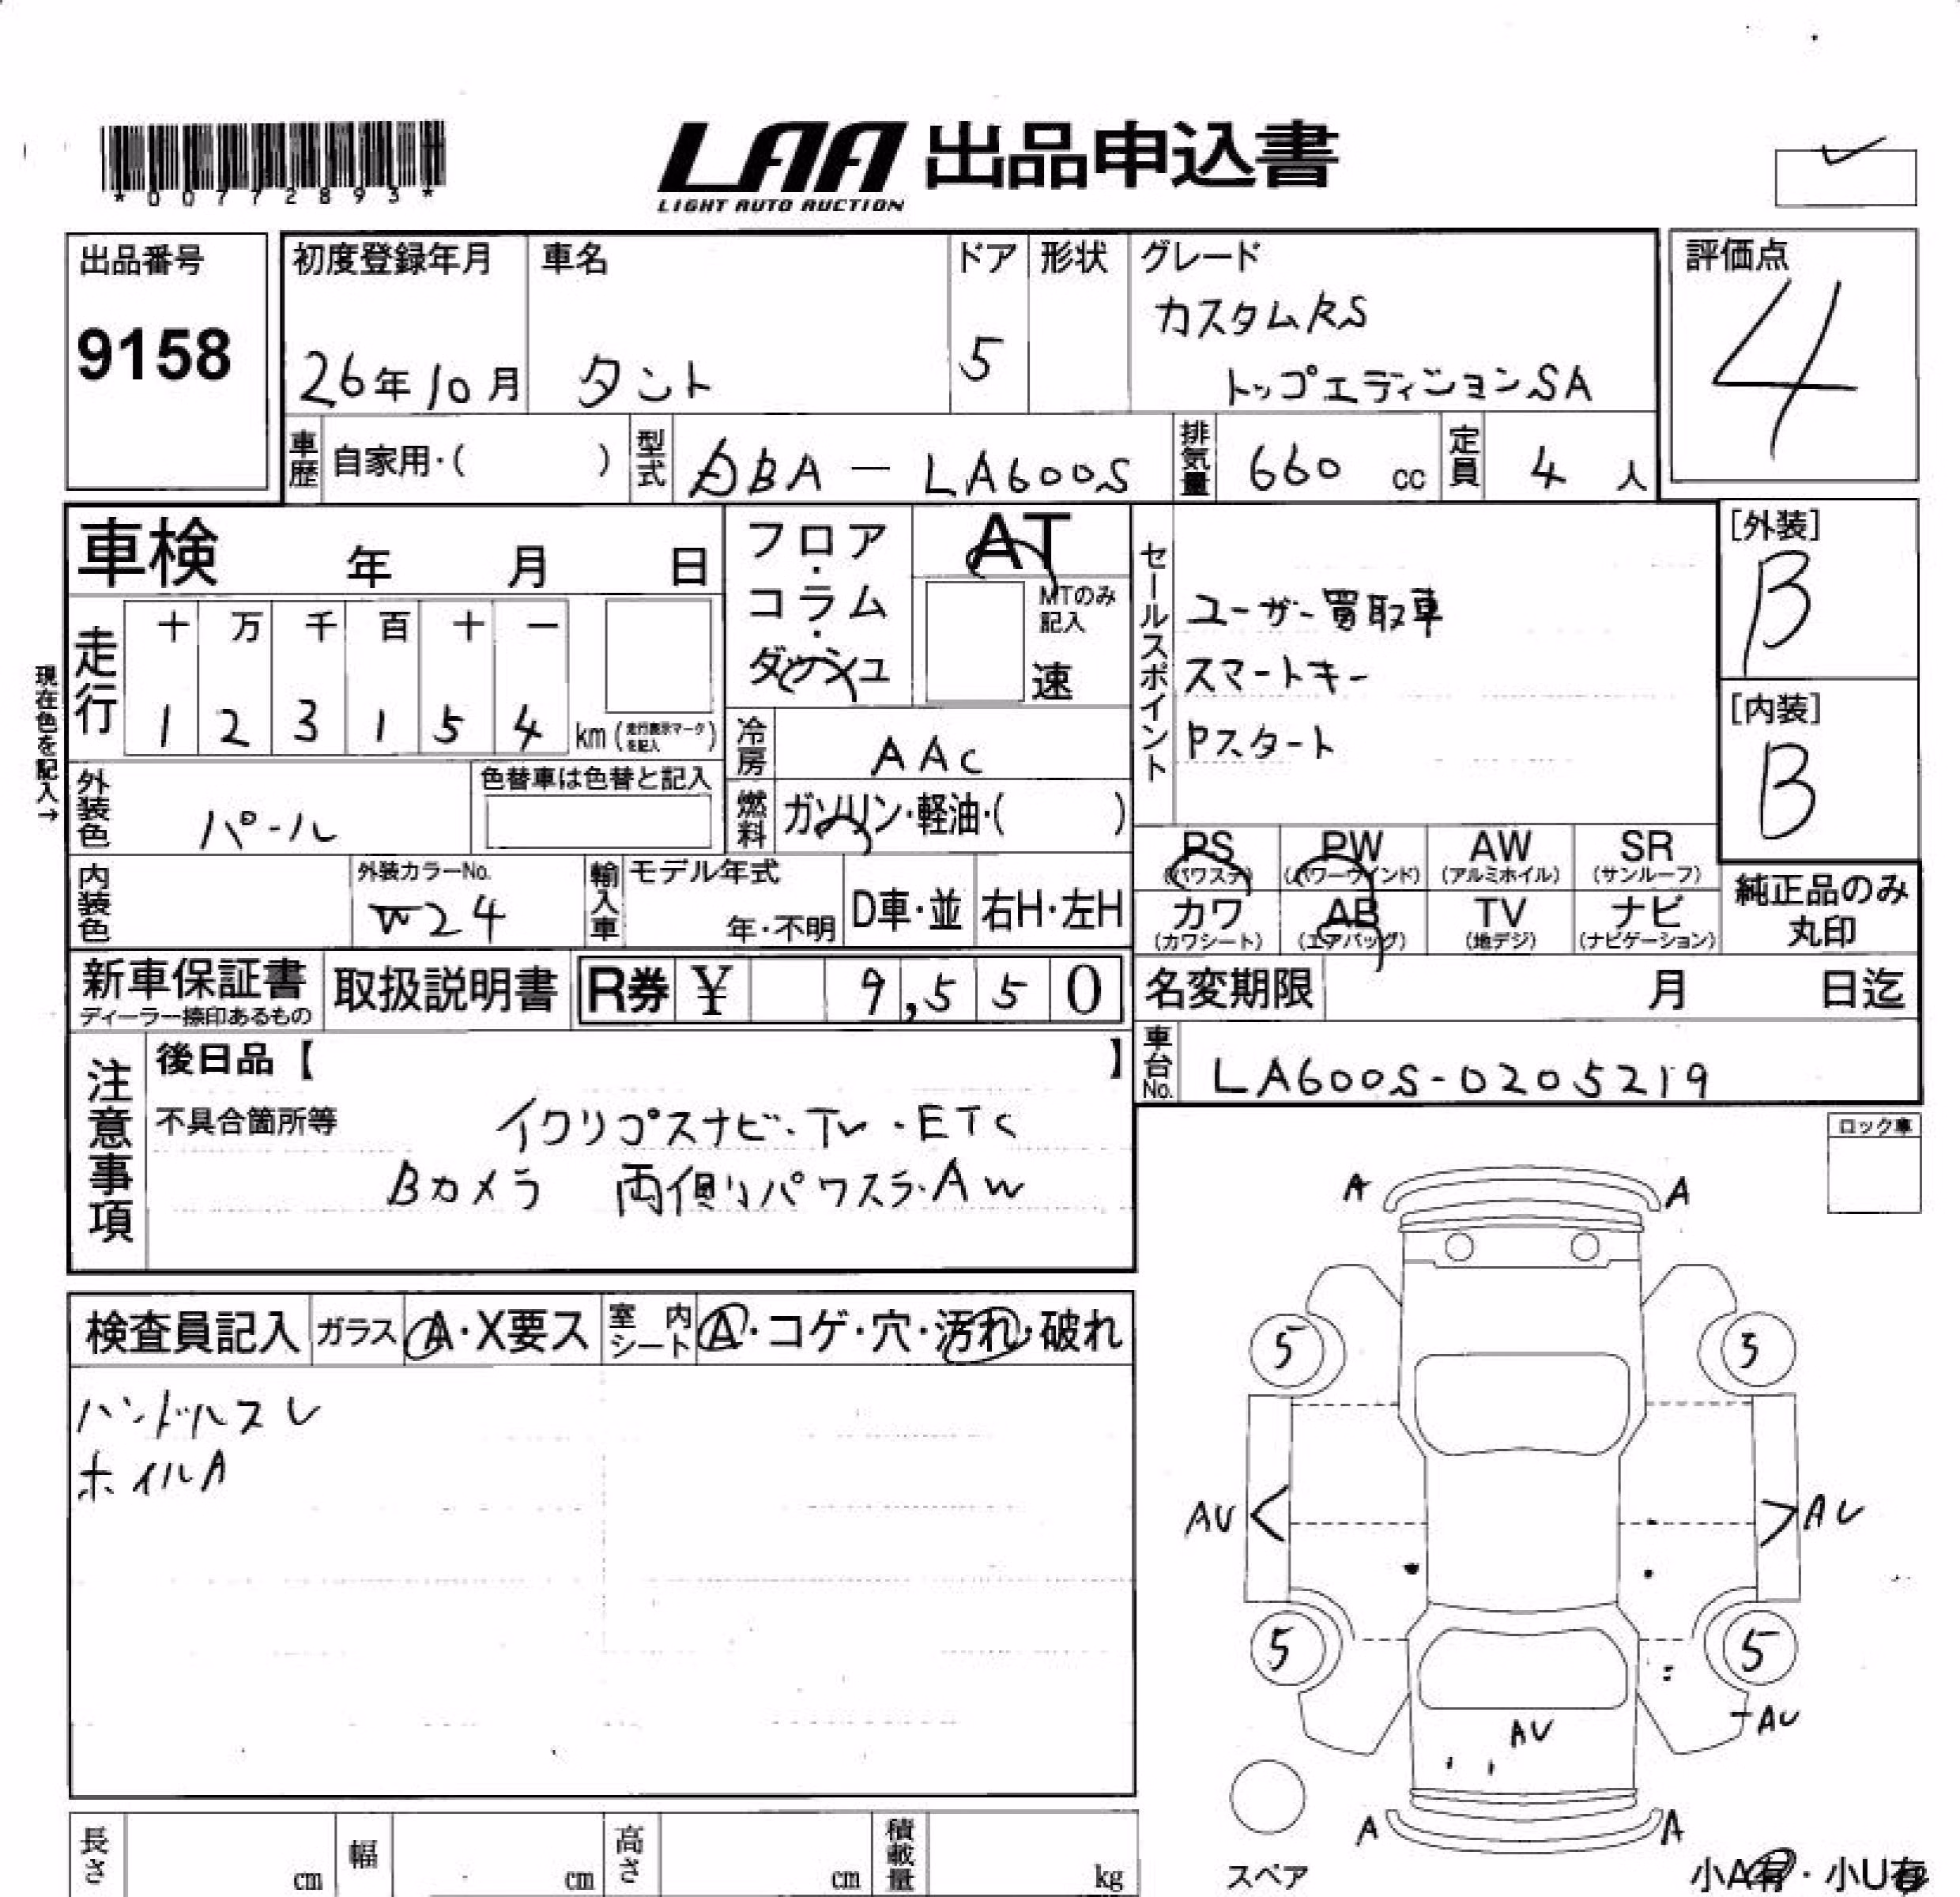 *00772893*
LAA 出品申込書
LIGHT AUTO AUCTION
出品番号
9158
初度登録年月
26年10月
車名
タント
ドア
5
形状
グレード
カスタムRS
トップエディションSA
評価点
4
車歴 自家用・( )
型式 DBA — LA600S
排気量 660 cc
定員 4 人
車検 年 月 日
フロア・コラム・ダッシュ
AT
MTのみ記入
速
セールスポイント
ユーザー買取車
スマートキー
Pスタート
[外装]
B
[内装]
B
現在色を記入→
走行
十 万 千 百 十 一
1 2 3 1 5 4 km(走行表示マークを記入)
冷房 AAC
燃料 ガソリン・軽油・( )
外装色 パール
色替車は色替と記入
内装色
外装カラーNo.
W24
輸入車
モデル年式
年・不明
D車・並
右H・左H
PS (パワステ)
PW (パワーウインド)
AW (アルミホイル)
SR (サンルーフ)
カワ (カワシート)
AB (エアバッグ)
TV (地デジ)
ナビ (ナビゲーション)
純正品のみ
丸印
新車保証書
ディーラー捺印あるもの
取扱説明書
R券 ¥ 9,550
名変期限 月 日迄
車台No. LA600S-0205219
注意事項
後日品【 】
不具合箇所等
イクリプスナビ・TV・ETC
Bカメラ 両側パワスラ・AW
ロック車
検査員記入
ガラス A・X要ス
室内シート A・コゲ・穴・汚れ・破れ
ハンドルスレ
ホイルA
A A
5 3
AU AU
5 5
AU
AU
A A
スペア
小A有・小U有
長さ cm
幅 cm
高さ cm
積載量 kg